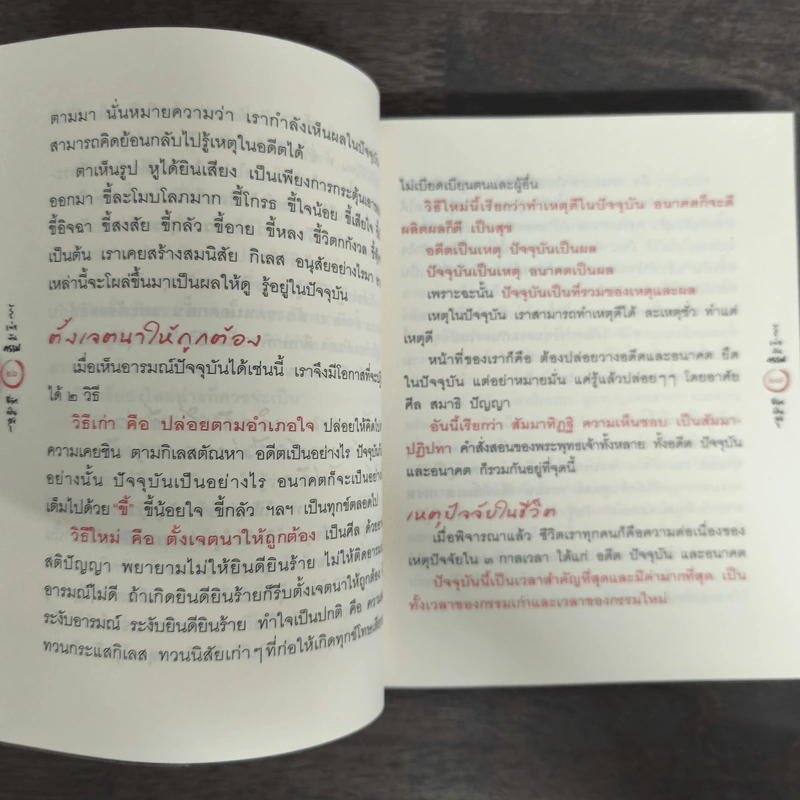 ตามมา นั่นหมายความว่า เรากำลังเห็นผลในปัจจุบัน
สามารถคิดย้อนกลับไปรู้เหตุในอดีตได้
ตาเห็นรูป หูได้ยินเสียง เป็นเพียงการกระตุ้นเอา
ออกมา ขี้ละโมบโลภมาก ขี้โกรธ ขี้ใจน้อย ขี้เสียใจ
ขี้อิจฉา ขี้สงสัย ขี้กลัว ขี้อาย ขี้หลง ขี้วิตกกังวล
เป็นต้น เราเคยสร้างสมนิสัย กิเลส อนุสัยอย่างไรมา
เหล่านี้จะโผล่ขึ้นมาเป็นผลให้ดู รู้อยู่ในปัจจุบัน
ตั้งเจตนาให้ถูกต้อง
เมื่อเห็นอารมณ์ปัจจุบันได้เช่นนี้ เราจึงมีโอกาสที่จะ
ได้ ๒ วิธี
วิธีเก่า คือ ปล่อยตามอำเภอใจ ปล่อยให้คิดไป
ความเคยชิน ตามกิเลสตัณหา อดีตเป็นอย่างไร ปัจจุบัน
อย่างนั้น ปัจจุบันเป็นอย่างไร อนาคตก็จะเป็นอย่าง
เต็มไปด้วย "ขี้" ขี้น้อยใจ ขี้กลัว ฯลฯ เป็นทุกข์ตลอดไป
วิธีใหม่ คือ ตั้งเจตนาให้ถูกต้อง เป็นศีล ด้วย
สติปัญญา พยายามไม่ให้ยินดียินร้าย ไม่ให้ติดอารมณ์
อารมณ์ไม่ดี ถ้าเกิดยินดียินร้ายก็รีบตั้งเจตนาให้ถูกต้อง
ระงับอารมณ์ ระงับยินดียินร้าย ทำใจเป็นปกติ คือ
ทวนกระแสกิเลส ทวนนิสัยเก่าๆ ที่ก่อให้เกิดทุกข์โทษ
ไม่เบียดเบียนตนและผู้อื่น
วิธีใหม่นี้เรียกว่าทำเหตุดีในปัจจุบัน อนาคตก็จะดี
ผลิตผลก็ดี เป็นสุข
อดีตเป็นเหตุ ปัจจุบันเป็นผล
ปัจจุบันเป็นเหตุ อนาคตเป็นผล
เพราะฉะนั้น ปัจจุบันเป็นที่รวมของเหตุและผล
เหตุในปัจจุบัน เราสามารถทำเหตุดีได้ ละเหตุชั่ว ทำแต่
เหตุดี
หน้าที่ของเราก็คือ ต้องปล่อยวางอดีตและอนาคต ยึด
ในปัจจุบัน แต่อย่าหมายมั่น แค่รู้แล้วปล่อยๆๆ โดยอาศัย
ศีล สมาธิ ปัญญา
อันนี้เรียกว่า สัมมาทิฏฐิ ความเห็นชอบ เป็นสัมมา-
ปฏิปทา คำสั่งสอนของพระพุทธเจ้าทั้งหลาย ทั้งอดีต ปัจจุบัน
และอนาคต ก็รวมกันอยู่ที่จุดนี้
เหตุปัจจัยในชีวิต
เมื่อพิจารณาแล้ว ชีวิตเราทุกคนก็คือความต่อเนื่องของ
เหตุปัจจัยใน ๓ กาลเวลา ได้แก่ อดีต ปัจจุบัน และอนาคต
ปัจจุบันนี้เป็นเวลาสำคัญที่สุดและมีค่ามากที่สุด เป็น
ทั้งเวลาของกรรมเก่าและเวลาของกรรมใหม่